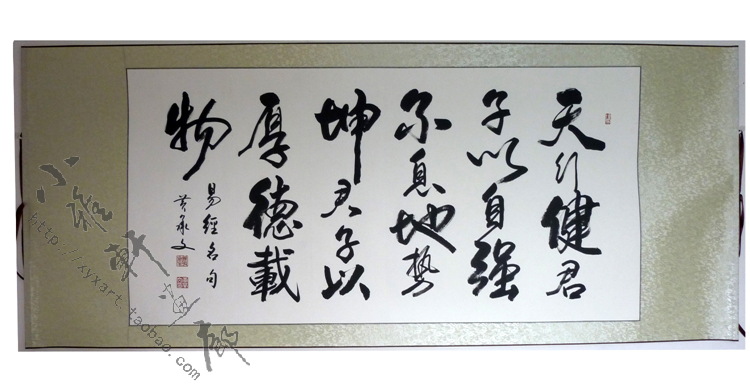 天行健君
子以自强
不息地势
坤君子以
厚德載
物
易經名句
黄承文
小雅轩画廊
http://xyxart.taobao.com